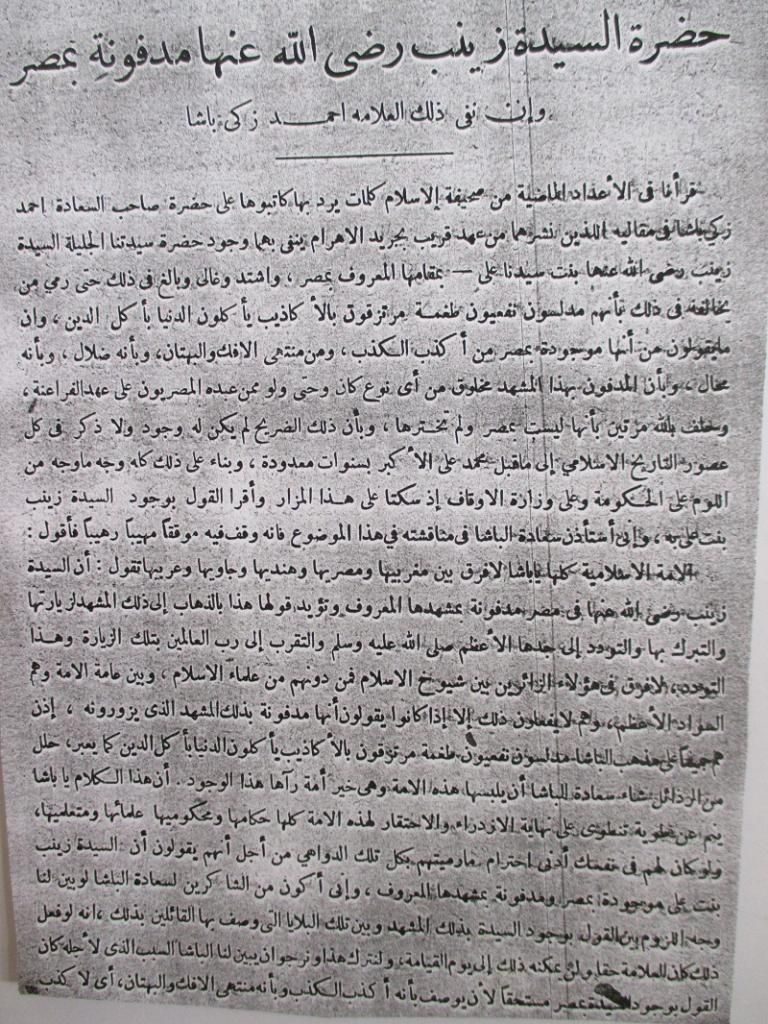 حضرة السيدة زينب رضى الله عنها مدفونة بمصر
وإن نفى ذلك العلامه احمد زكى باشا
قرأنا فى الأعداد الماضية من صحيفة الاسلام كلمات يرد بها كاتبوها على حضرة صاحب السعادة احمد
زكى باشا فى مقاليه اللذين نشرهما من عهد قريب بجريدة الاهرام ينفى بهما وجود حضرة سيدتنا الجليلة السيدة
زينب رضى الله عنها بنت سيدنا على — بمقامها المعروف بمصر ، واشتد وغالى وبالغ فى ذلك حتى رمي من
يخالفه فى ذلك بأنهم مدلسون نفعيون طغمة مرتزقون بالأكاذيب يأكلون الدنيا بأكل الدين ، وان
مايقولون من أنها موجودة بمصر من أكذب الكذب ، ومن منتهى الافك والبهتان، وبأنه ضلال ، وبأنه
محال ، وبأن المدفون بهذا المشهد مخلوق من أى نوع كان وحتى ولو ممن عبده المصريون على عهد الفراعنة ،
وحلف بالله مرتين بأنها ليست بمصر ولم تحضرها ، وبأن ذلك الضريح لم يكن له وجود ولا ذكر فى كل
عصور التاريخ الاسلامي إلى ماقبل محمد على الأكبر بسنوات معدودة ، وبناء على ذلك كله وجه ماوجه من
اللوم على الحكومة وعلى وزارة الاوقاف إذ سكتا على هذا المزار وأقرا القول بوجود السيدة زينب
بنت على به ، وإنى أستأذن سعادة الباشا فى مناقشته فى هذا الموضوع فانه وقف فيه موقفاً مهيباً رهيباً فأقول :
الامة الاسلامية كلها ياباشا لافرق بين مغربيها ومصريها وهنديها وجاويها وعربيها تقول : أن السيدة
زينب رضى الله عنها فى مصر مدفونة بمشهدها المعروف وتؤيد قولها هذا بالذهاب إلى ذلك المشهد لزيارتها
والتبرك بها والتودد إلى جدها الأعظم صلى الله عليه وسلم والتقرب إلى رب العالمين بتلك الزيارة وهذا
التودد، لافرق فى هؤلاء الزائرين بين شيوخ الاسلام فمن دونهم من علماء الاسلام ، وبين عامة الامة وهم
السواد الأعظم، وهم لايفعلون ذلك إلا إذا كانوا يقولون أنها مدفونة بذلك المشهد الذى يزورونه ، إذن
هم جميعاً على مذهب الباشا مدلسون نفعيون طغمة مرتزقون بالأكاذيب يأكلون الدنيا بأكل الدين كما يعبر، حلل
من الرذائل شاء سعادة الباشا أن يلبسها هذه الامة وهى خير أمة رآها هذا الوجود.. أن هذا الكلام يا باشا
ينم عن طوية تنطوى على نهاية الازدراء والاحتقار لهذه الامة كلها حكامها ومحكوميها علمائها ومتعلميها،
ولو كان لهم فى نفسك أدنى احترام مارميتهم بكل تلك الدواهي من أجل أنهم يقولون أن السيدة زينب
بنت على موجودة بمصر ومدفونة بمشهدها المعروف ، وإنى أكون من الشاكرين لسعادة الباشا لو بين لنا
وجه اللزوم بين القول بوجود السيدة بذلك المشهد وبين تلك البلايا التى وصف بها القائلين بذلك ، انه لو فعل
ذلك كان للعلامة حقا ولن يمكنه ذلك إلى يوم القيامة، ولنترك هذا ونرجو ان يبين لنا الباشا السبب الذى لأجله كان
القول بوجود السيدة بمصر مستحقاً لأن يوصف بأنه أكذب الكذب وبأنه منتهى الافك والبهتان، أى لا كذب